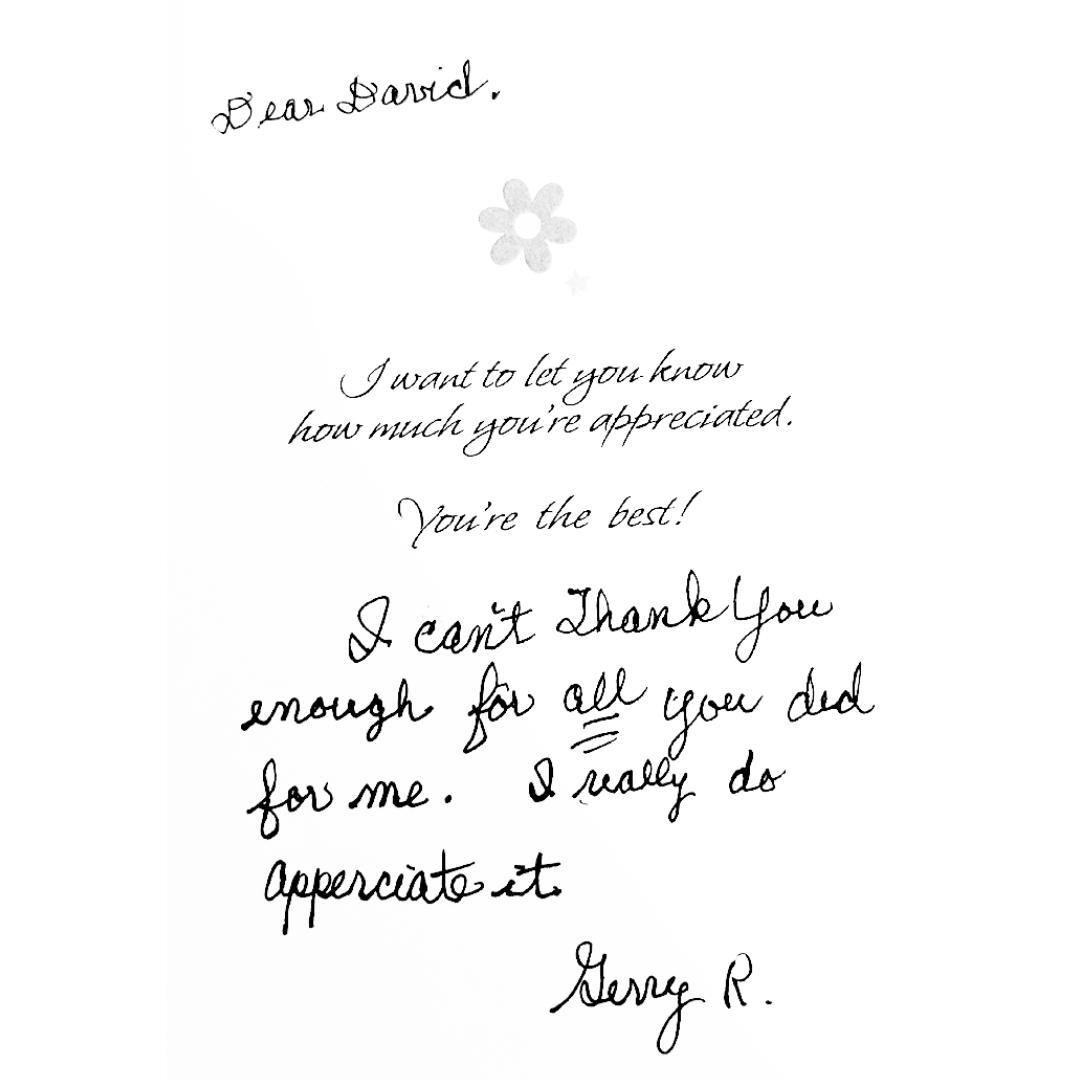 Dear David.
I want to let you know
how much you're appreciated.
You're the best!
I can't Thank You
enough for all you did
for me. I really do
apperciate it.
Gerry R.